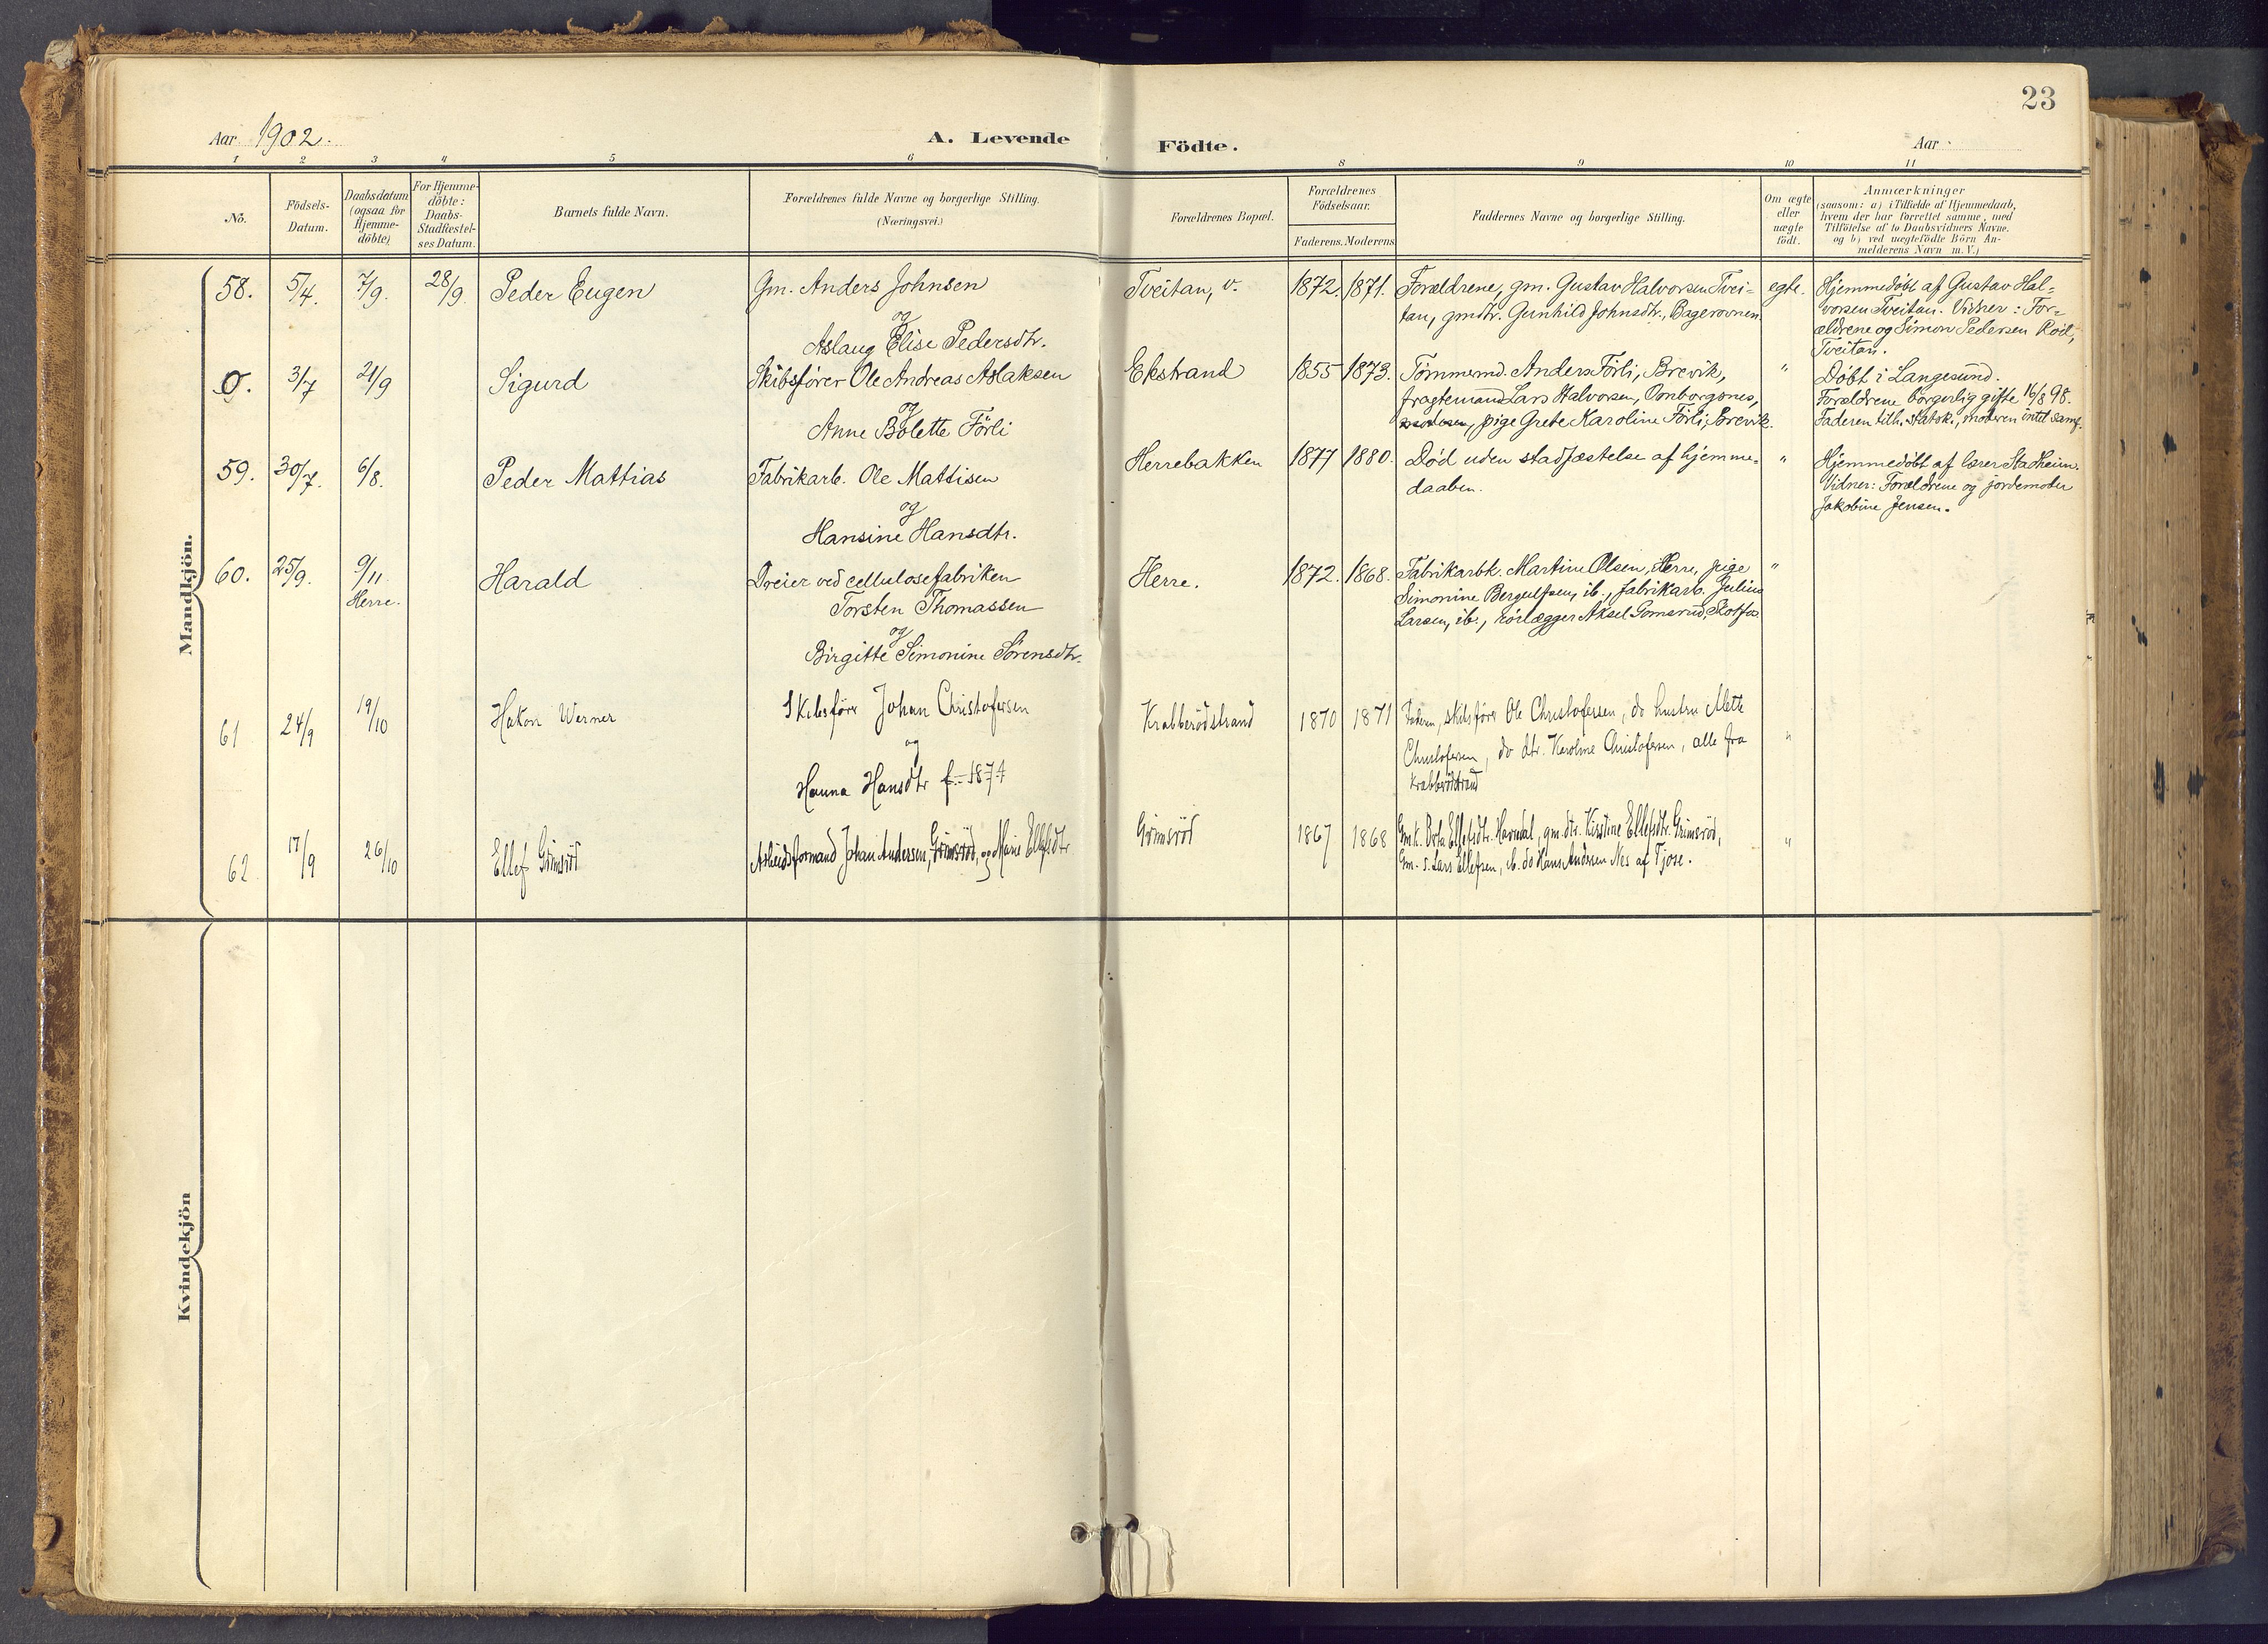 23
Aar 1902.
A. Levende
Födte.
Aar
1 2 3 4 5 6 8 9 10 11
No.
Födsels-
Datum.
Daabsdatum
(ogsaa for
Hjemme-
döbte)
For Hjemme-
döbte:
Daabs-
Stadfæstel-
ses Datum.
Barnets fulde Navn.
Forældrenes fulde Navne og borgerlige Stilling.
(Næringsvei.)
Forældrenes Bopæl.
Forældrenes
Födselsaar.
Faderens. Moderens
Faddernes Navne og borgerlige Stilling.
Om ægte
eller
uægte
födt.
Anmærkninger
(saasom: a) i Tilfælde af Hjemmedaab,
hvem der har forrettet samme, med
Tilföielse af to Daabsvidners Navne.
og b) ved uægtefödte Börn An-
melderens Navn m. V.)
Mandkjön.
58. 5/4. 7/9. 28/9. Peder Eugen
Gm. Anders Johnsen
og
Aslaug Elise Pedersdtr.
Tveitan, v. 1872. 1871.
Forældrene, gm. Gustav Halvorsen Tvei-
tan, gmdtr. Gunhild Johnsdtr., Bagerovnen.
egte.
Hjemmedöbt af Gustav Hal-
vorsen Tveitan. Vidner: For-
ældrene og Simon Pedersen Röd,
Tveitan.
0. 3/7 21/9 Sigurd
Skibsförer Ole Andreas Aslaksen
og
Anne Bolette Förli
Ekstrand 1855 1873.
Tömmermd. Anders Förli, Brevik,
fragtemand Lars Halvorsen, Oonborgsnes,
pige Grete Karoline Förli, Brevik.
"
Döbt i Langesund.
Forældrene borgerlig gifte 16/8 98.
Faderen tilh. statsk., moderen intet samf.
59. 30/7. 6/8. Peder Mattias
Fabrikarb. Ole Mattisen
og
Hansine Hansdtr.
Herrebakken 1877 1880.
Död uden stadfæstelse af hjemme-
daaben.
"
Hjemmedöbt af lærer Stadheim.
Vidner: Forældrene og jordemoder
Jakobine Jensen.
60. 25/9. 9/11. Harald
Herre.
Dreier ved cellulosefabriken
Torsten Thomassen
og
Birgitte Simonine Sörensdtr.
Herre. 1872. 1868.
Fabrikarbk. Martine Olsen, Herre, pige
Simonine Bergulfsen, ib., fabrikarb. Julius
Larsen, ib., rörlægger Aksel Gomsrud, Skotfos.
"
61 24/9 19/10 Hakon Werner
Skibsförer Johan Christofersen
og
Hanna Hansdtr f. 1874
Krabberödstrand 1870 1871
Faderen, skibsförer Ole Christofersen, do hustru Mette
Christofersen, do dtr. Karoline Christofersen, alle fra
Krabberödstrand
"
62 17/9 26/10 Ellef Grimsröd
Arbeidsformand Johan Andersen, Grimsröd, og Marie Ellefsdtr
Grimsröd 1867 1868
Gmk. Berta Ellefsdtr. Havredal, gm. dtr. Kirstine Ellefsdtr. Grimsröd,
Gm. s. Lars Ellefsen, ib. do Hans Andersen Nes af Tjose.
"
Kvindekjön